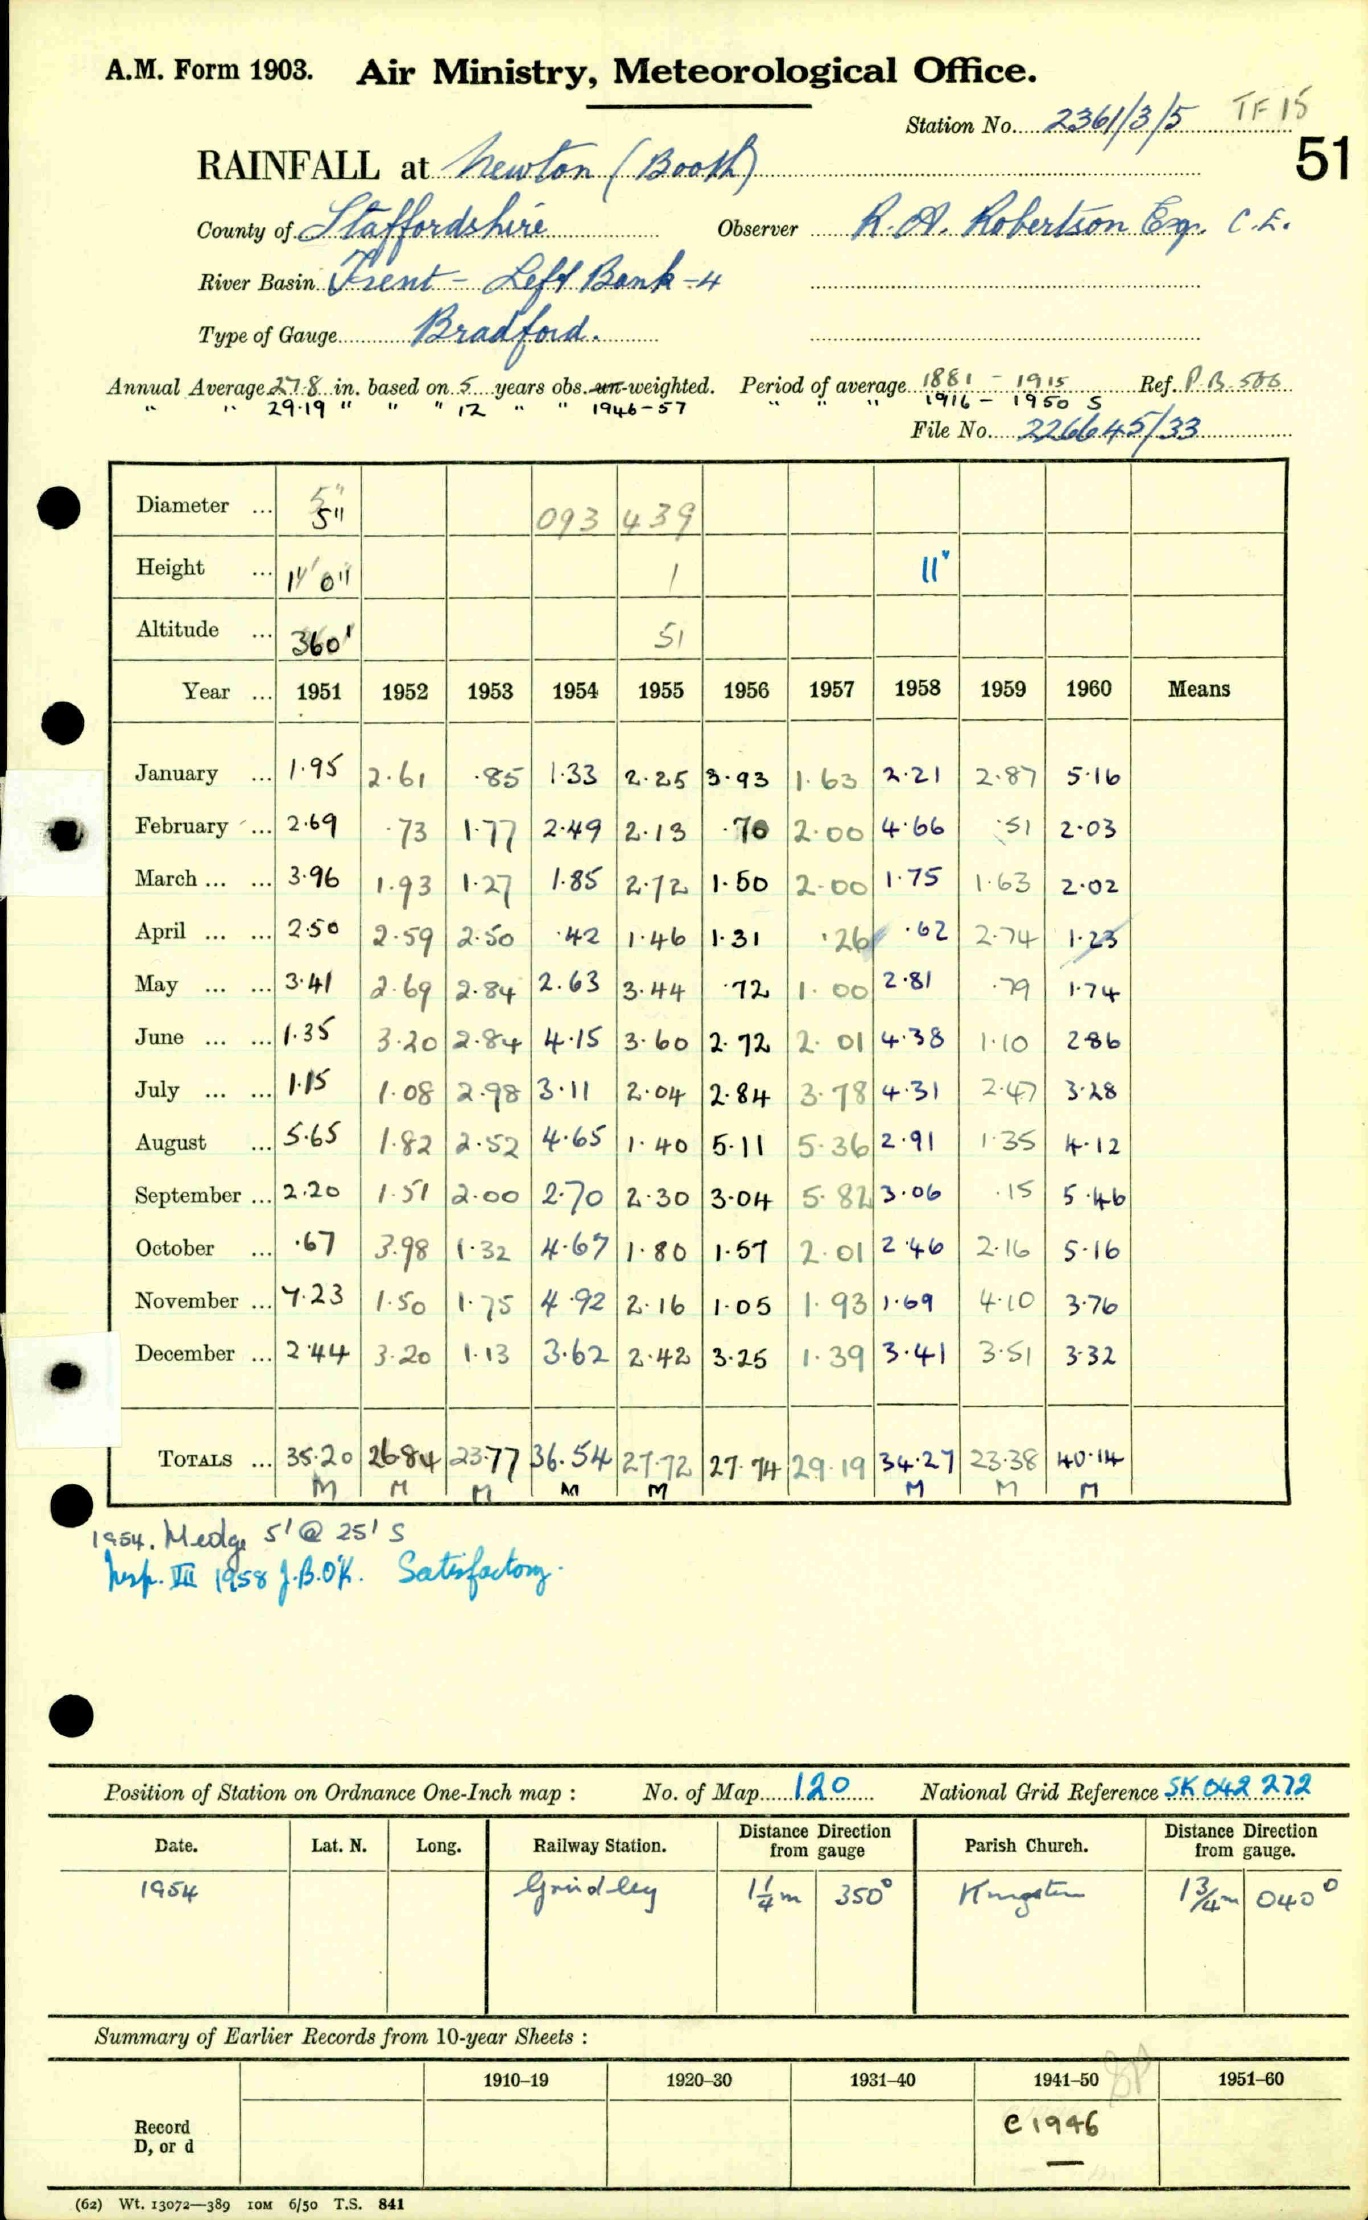 A.M. Form 1903. Air Ministry, Meteorological Office.
Station No. 2361/3/5 TF 15
51
RAINFALL at Newton (Booth)
County of Staffordshire Observer R. A. Robertson Esq. C.E.
River Basin Trent - Left Bank - 4
Type of Gauge Bradford.
Annual Average 27.8 in. based on 5 years obs. un-weighted. Period of average 1881 - 1915 Ref. P B 506
" " 29.19 " " " 12 " " 1946-57 " " " 1916 - 1950 S
File No. 226645/33
Diameter ... 5" 5" 093 439
Height ... 1' 0" 1 11"
Altitude ... 360' 51
Year ... 1951 1952 1953 1954 1955 1956 1957 1958 1959 1960 Means
January ... 1.95 2.61 .85 1.33 2.25 3.93 1.63 2.21 2.87 5.16
February ... 2.69 .73 1.77 2.49 2.13 .70 2.00 4.66 .51 2.03
March ... ... 3.96 1.93 1.27 1.85 2.72 1.50 2.00 1.75 1.63 2.02
April ... ... 2.50 2.59 2.50 .42 1.46 1.31 .26 .62 2.74 1.23
May ... ... 3.41 2.69 2.84 2.63 3.44 .72 1.00 2.81 .79 1.74
June ... ... 1.35 3.20 2.84 4.15 3.60 2.72 2.01 4.38 1.10 2.86
July ... ... 1.15 1.08 2.98 3.11 2.04 2.84 3.78 4.31 2.47 3.28
August ... 5.65 1.82 2.52 4.65 1.40 5.11 5.36 2.91 1.35 4.12
September ... 2.20 1.51 2.00 2.70 2.30 3.04 5.82 3.06 .15 5.46
October ... .67 3.98 1.32 4.67 1.80 1.57 2.01 2.46 2.16 5.16
November ... 7.23 1.50 1.75 4.92 2.16 1.05 1.93 1.69 4.10 3.76
December ... 2.44 3.20 1.13 3.62 2.42 3.25 1.39 3.41 3.51 3.32
TOTALS ... 35.20 26.84 23.77 36.54 27.72 27.74 29.19 34.27 23.38 40.14
M M M M M M M M
1954. Hedge 5' @ 25' S
Insp. VII 1958 J.B.O'K. Satisfactory.
Position of Station on Ordnance One-Inch map : No. of Map 120 National Grid Reference SK 042 272
Date. Lat. N. Long. Railway Station. Distance Direction from gauge Parish Church. Distance Direction from gauge.
1954 Grindley 1 1/4 m 350° Kingston 1 3/4 m 040°
Summary of Earlier Records from 10-year Sheets :
1910–19 1920–30 1931–40 1941–50 1951–60
Record D, or d C 1946 —
(62) Wt. 13072—389 10M 6/50 T.S. 841